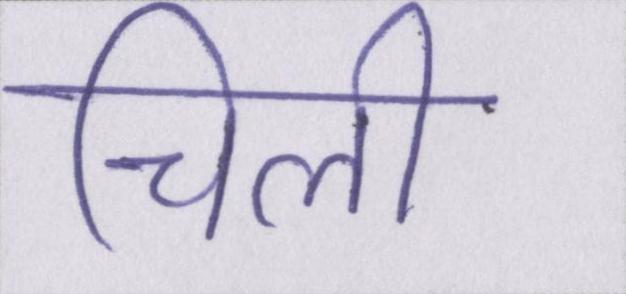 चिली